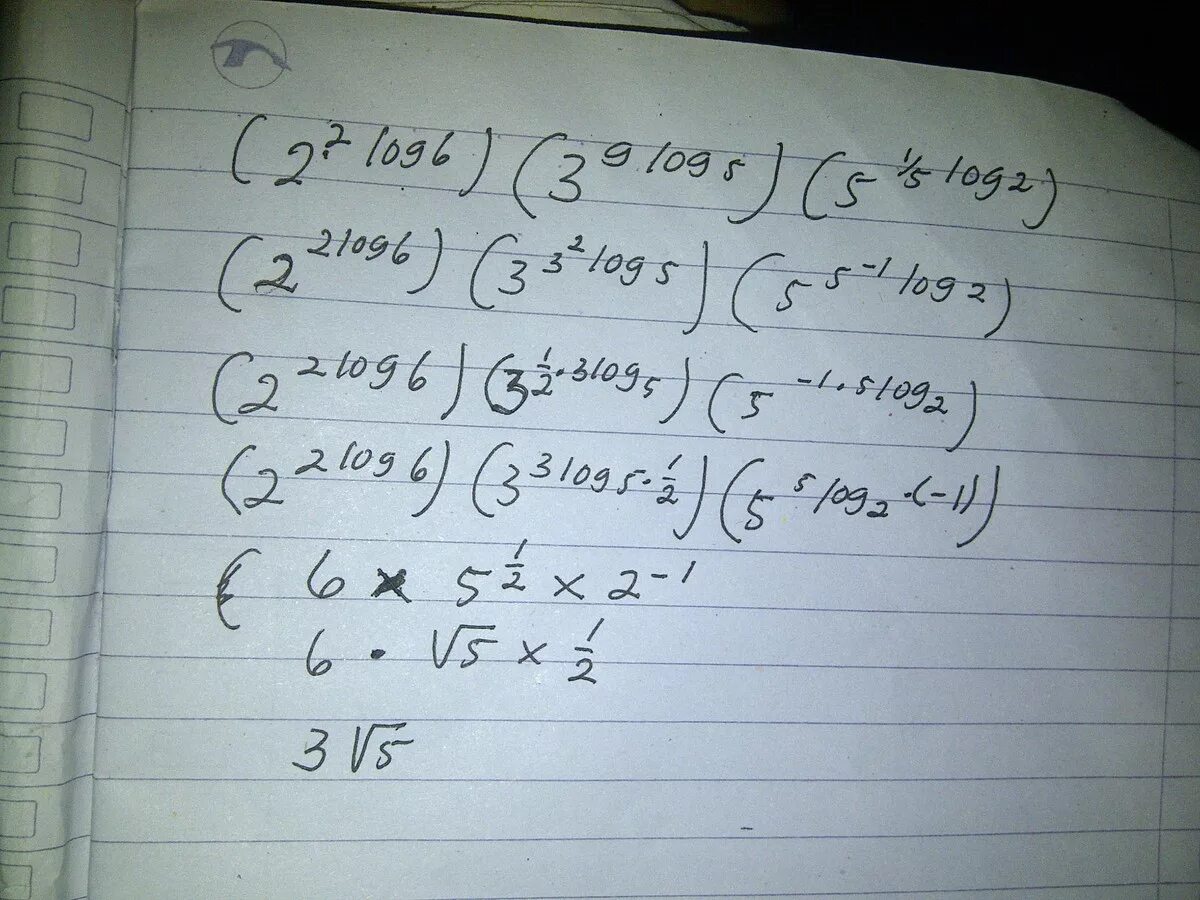 (2^2 log 6) (3^9 log 5) (5^1/5 log 2)
(2^2 log 6) (3^3^2 log 5) (5^5^-1 log 2)
(2^2 log 6) (3^1/2 · 3 log 5) (5^-1 · 5 log 2)
(2^2 log 6) (3^3 log 5 · 1/2) (5^5 log 2 · (-1))
( 6 × 5^1/2 × 2^-1
6 · √5 × 1/2
3 √5